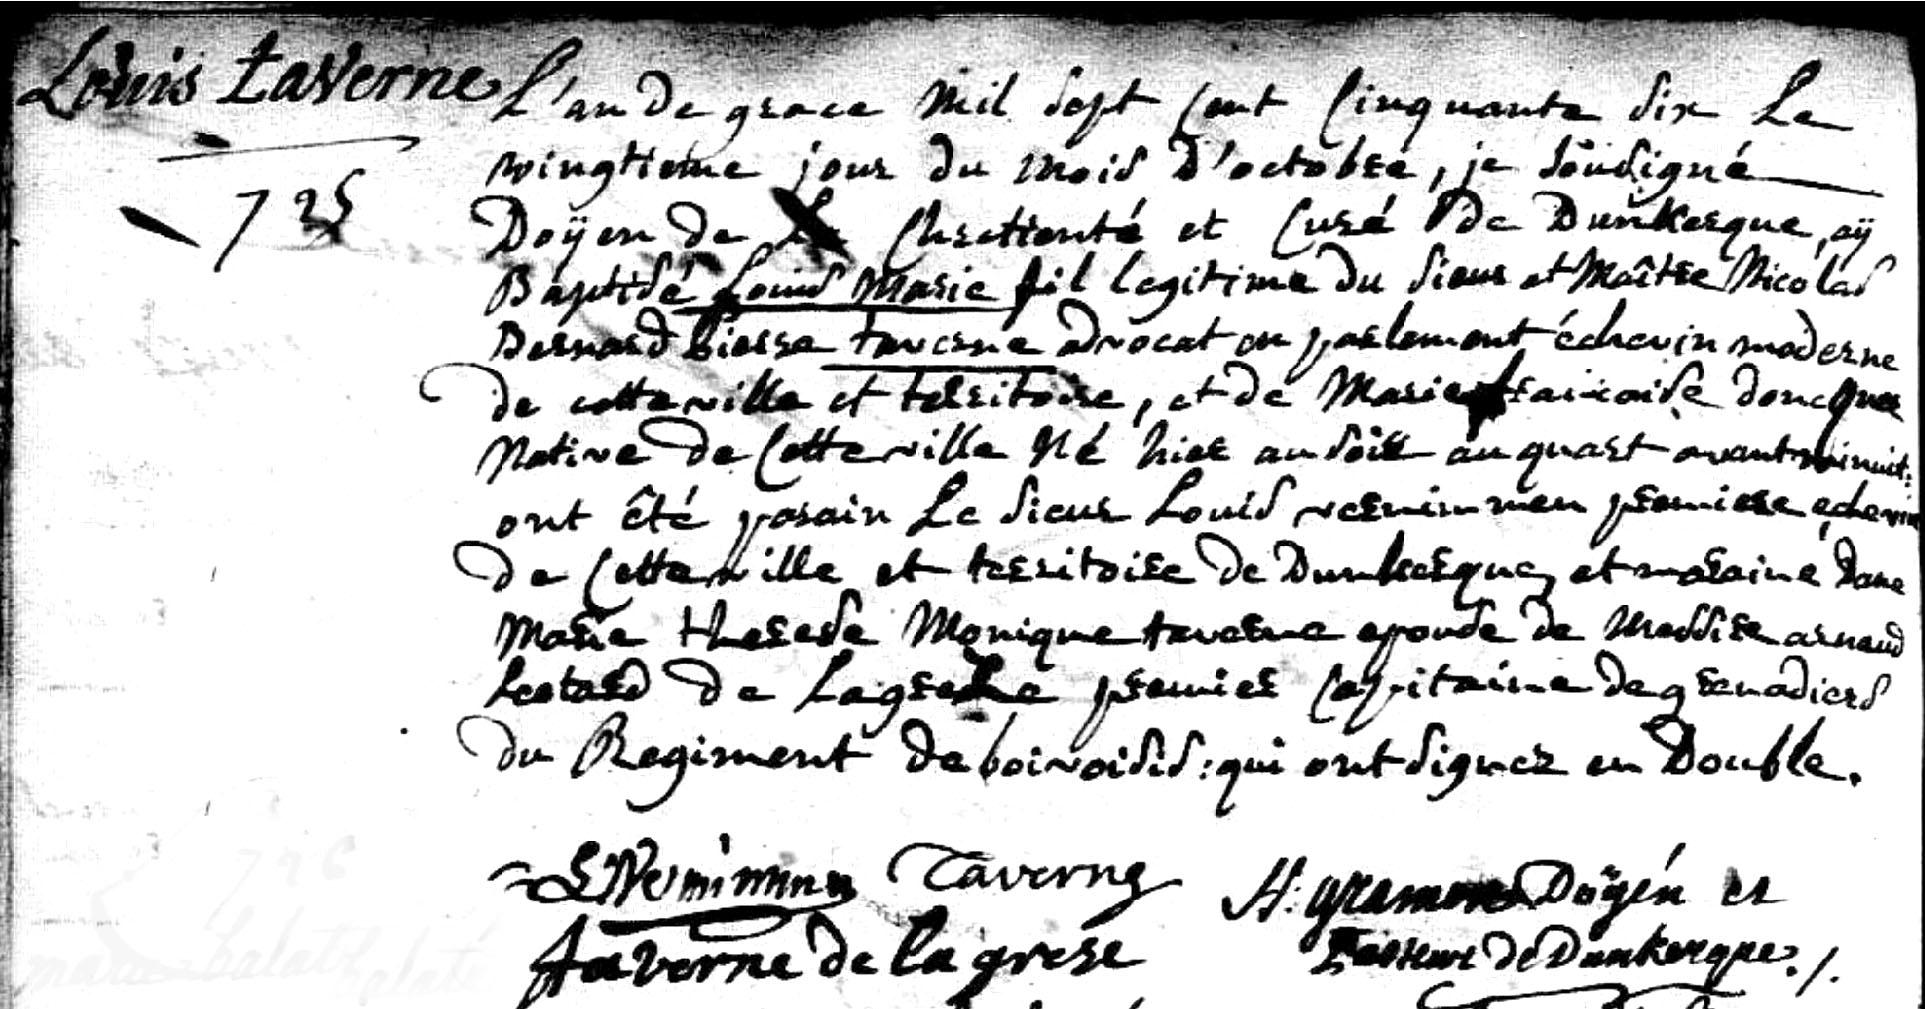 Louis Taverne
725
L'an de grace mil sept cent cinquante six Le
vingtieme jour du mois d'octobre, je soûsigné
Doÿen de Chretienté et Curé de Dunkerque, aÿ
Baptisé Louis Marie fil legitime du sieur et Maître Nicolas
Bernard Pierre taverne advocat en parlement échevin moderne
de cette ville et territoire, et de Marie francoise doncquer
Native de Cette ville Né hier au soir au quart avant minuit:
ont été parain Le sieur Louis verminmen premiere echevin
de Cette ville et territoire de Dunkerque, et maraine dame
Marie therese Monique taverne epouse de Messire arnaud
Leotard de Lagrese premier Capitaine de grenadiers
du Regiment de boivoisis: qui ont signez en Double.
Taverne
H. gramon Doÿen et
taverne de la greze
Pasteur de Dunkerque ./.
726